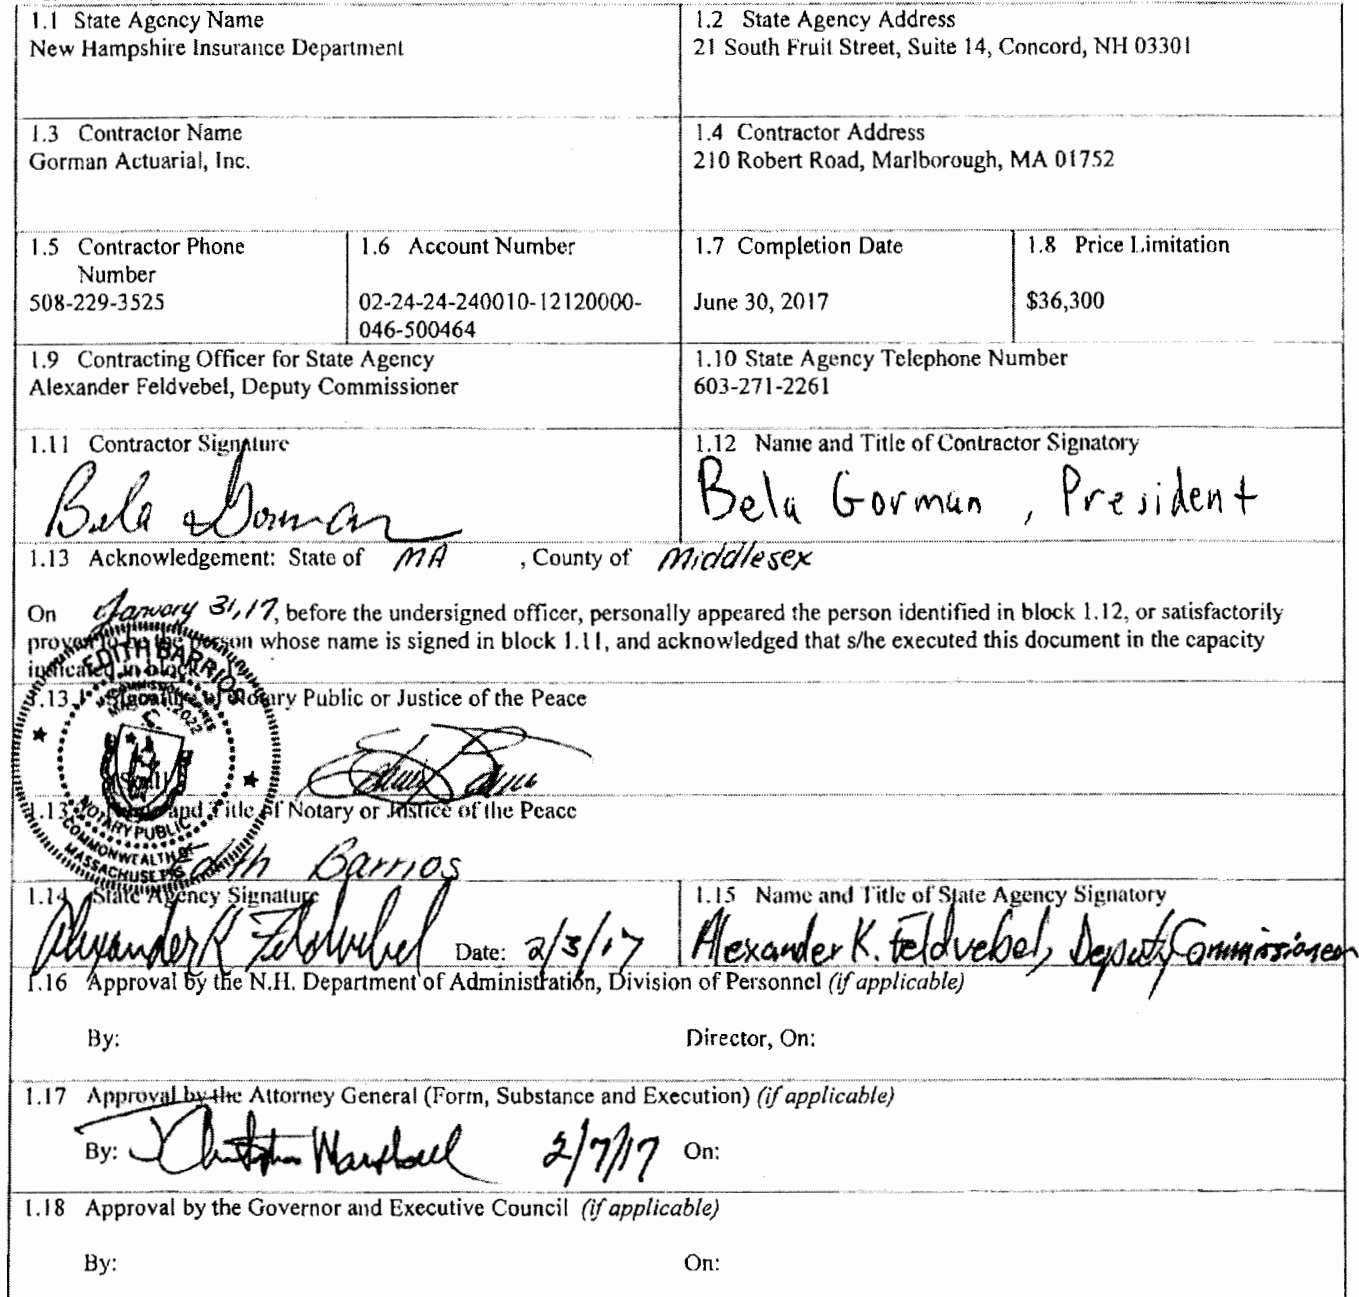 1.1 State Agency Name
New Hampshire Insurance Department
1.2 State Agency Address
21 South Fruit Street, Suite 14, Concord, NH 03301
1.3 Contractor Name
Gorman Actuarial, Inc.
1.4 Contractor Address
210 Robert Road, Marlborough, MA 01752
1.5 Contractor Phone
Number
508-229-3525
1.6 Account Number
02-24-24-240010-12120000-
046-500464
1.7 Completion Date
June 30, 2017
1.8 Price Limitation
$36,300
1.9 Contracting Officer for State Agency
Alexander Feldvebel, Deputy Commissioner
1.10 State Agency Telephone Number
603-271-2261
1.11 Contractor Signature
Bela Gorman
1.12 Name and Title of Contractor Signatory
Bela Gorman, President
1.13 Acknowledgement: State of MA , County of Middlesex
On January 31, 17, before the undersigned officer, personally appeared the person identified in block 1.12, or satisfactorily
proven to be the person whose name is signed in block 1.11, and acknowledged that s/he executed this document in the capacity
indicated in block
1.13 Signature of Notary Public or Justice of the Peace
EDITH BARRIOS
2022
[Seal]
NOTARY PUBLIC
COMMONWEALTH OF
MASSACHUSETTS
1.13 and Title of Notary or Justice of the Peace
Edith Barrios
1.14 State Agency Signature
Alexander K Feldvebel Date: 2/3/17
1.15 Name and Title of State Agency Signatory
Alexander K. Feldvebel, Deputy Commissioner
1.16 Approval by the N.H. Department of Administration, Division of Personnel (if applicable)
By: Director, On:
1.17 Approval by the Attorney General (Form, Substance and Execution) (if applicable)
By: J Christopher Marshall 2/7/17 On:
1.18 Approval by the Governor and Executive Council (if applicable)
By: On: